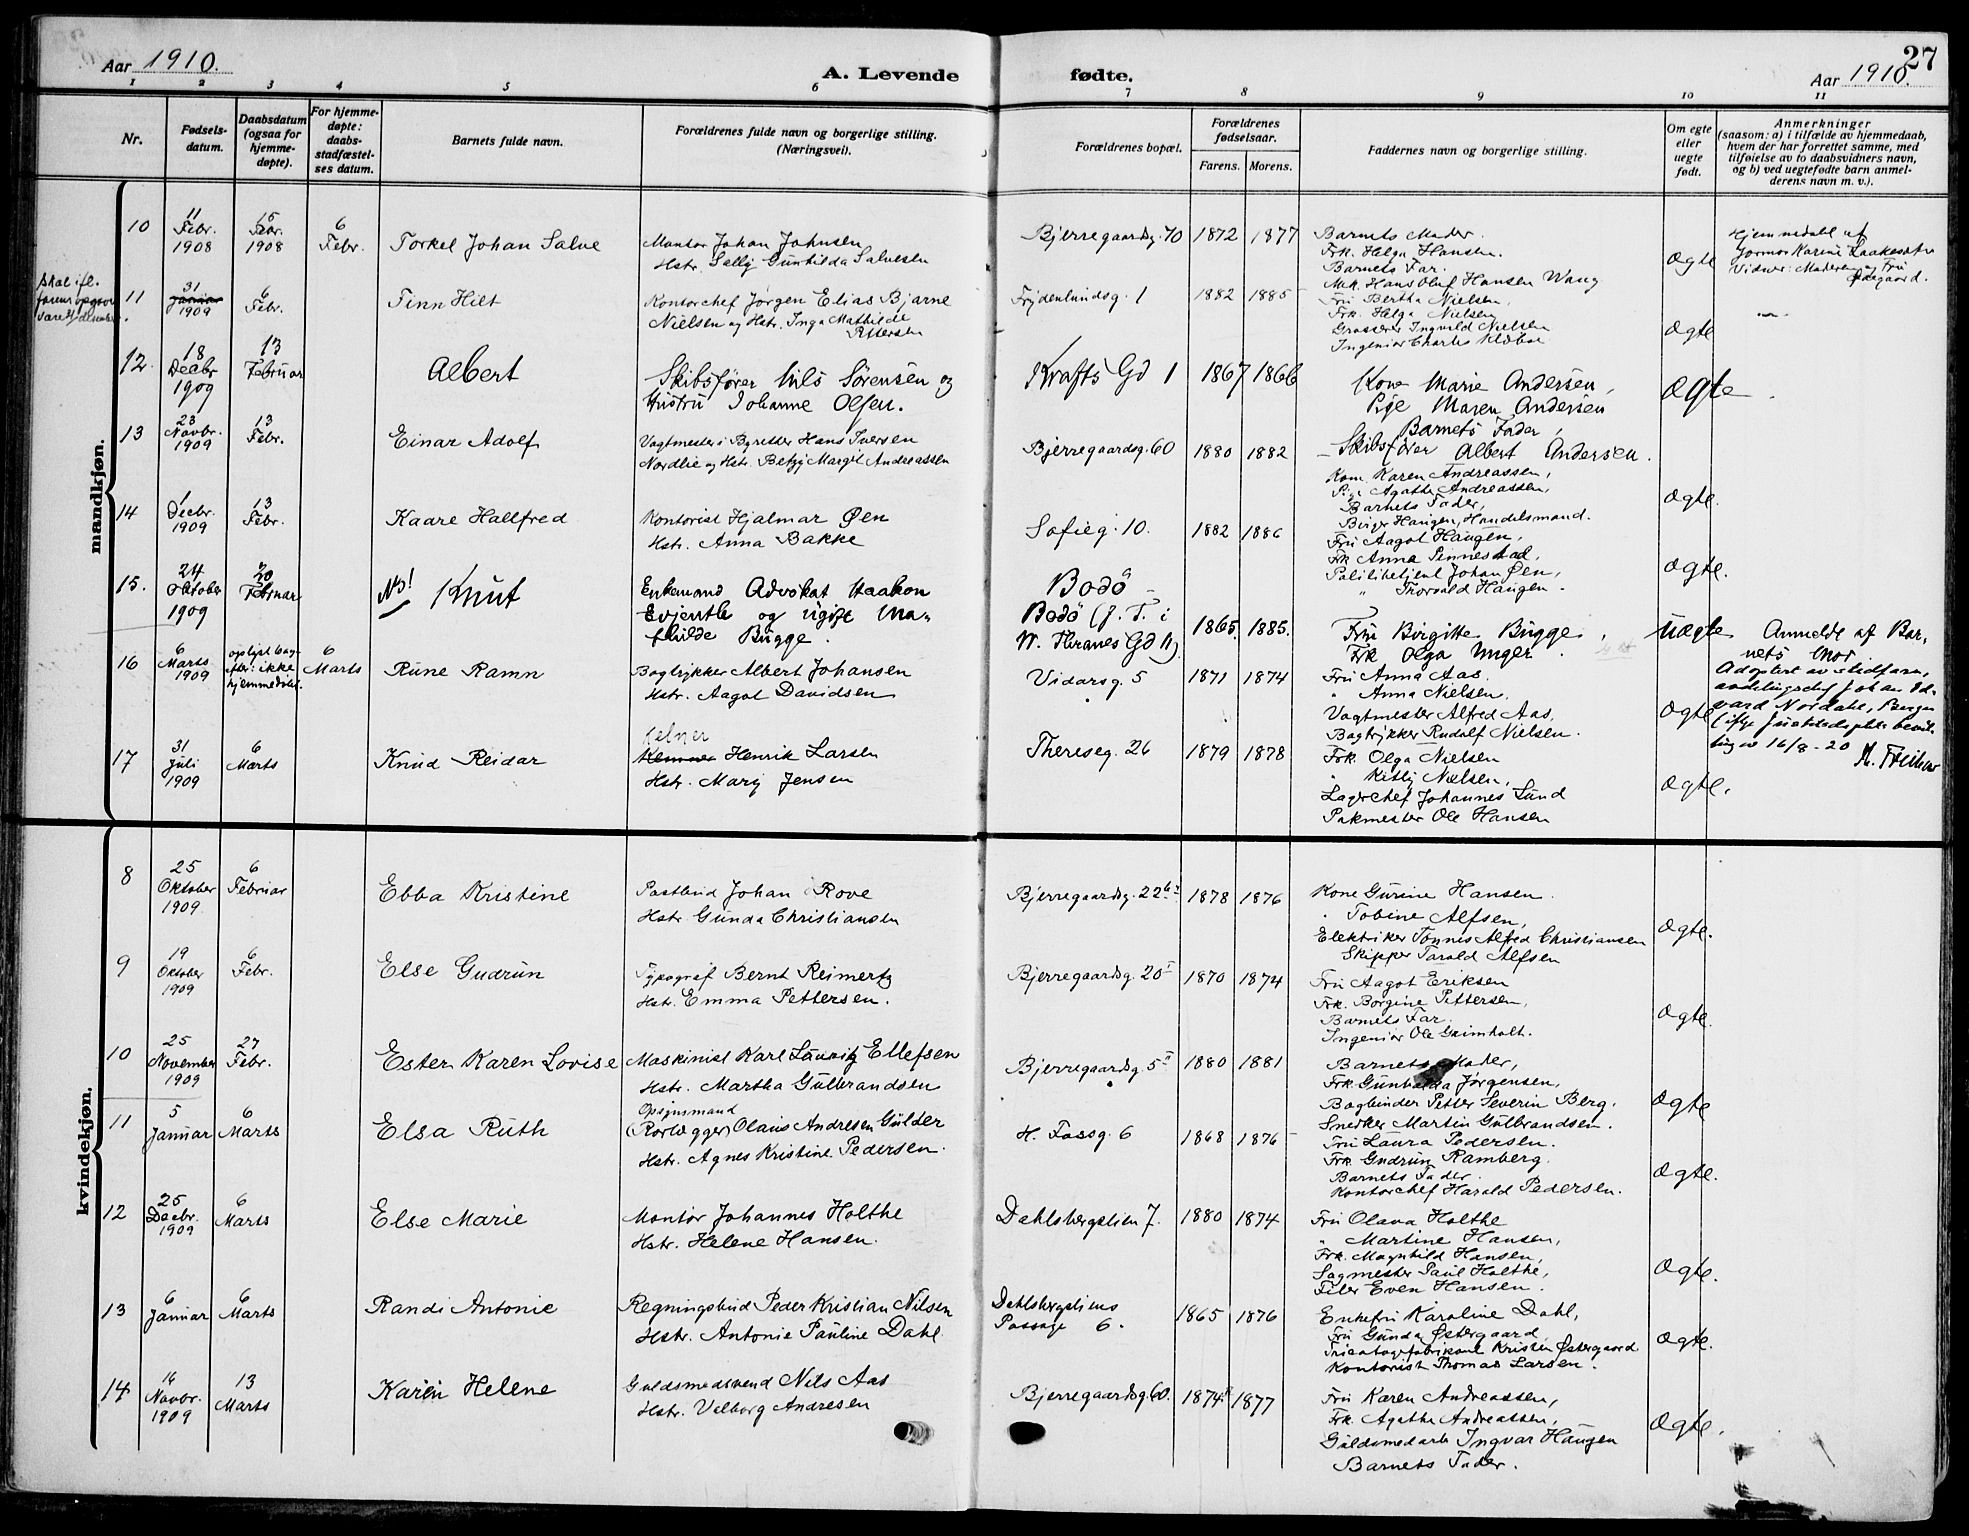 Aar 1910.
A. Levende
fødte.
Aar 1910.
27
1 2 3 4 5 6 7 8 9 10 11
Nr.
Fødsels-
datum.
Daabsdatum
(ogsaa for
hjemme-
døpte).
For hjemme-
døpte:
daabs-
stadfæstel-
ses datum.
Barnets fulde navn.
Forældrenes fulde navn og borgerlige stilling.
(Næringsvei).
Forældrenes bopæl.
Forældrenes
fødselsaar.
Farens. Morens.
Faddernes navn og borgerlige stilling.
Om egte
eller
uegte
født.
Anmerkninger
(saasom: a) i tilfælde av hjemmedaab,
hvem der har forrettet samme, med
tilføielse av to daabsvidners navn,
og b) ved uegtefødte barn anmel-
derens navn m. v.).
mandkjøn.
10
11
Febr.
1908
15
Febr.
1908
6
Febr.
Torkel Johan Salve
Montør Johan Johnsen
Hstr. Sally Gunhilda Salvesen
Bjerregaardsg. 70
1872 1877
Barnets Moder.
Frk. Helga Hansen.
Barnets Far.
Mek. Hans Oluf Hansen Wang
Ægte
Hjemmedøbt af
Jormor Karine Laakesøtre
Vidner: Moderen og Fru
Ødegaard.
Skal ifl.
11
31
Januar
1909
6
Febr.
Finn Hilt
Kontorchef Jørgen Elias Bjarne
Nielsen og Hstr. Inga Mathilde
Pettersen
Frydenlundsg. 1
1882 1885
Fru Bertha Nielsen,
Frk. Helga Nielsen
Grosserer Ingvald Nielsen
Ingeniør Charles Klæboe
Ægte
12.
18
Decbr
1909
13
Februar
Albert
Skibsfører Nils Sörensen og
Hustru Johanne Olsen.
Krafts Gd 1
1867 1866
Kone Marie Andersen,
Pige Maren Andersen
Barnets Fader,
Skibsfører Albert Andersen.
Ægte
13
23
Novbr.
1909
13
Febr.
Einar Adolf
Vagtmester i Byretten Hans Iversen
Nordlie og Hstr. Betzy Margit Andreassen
Bjerregaardsg. 60
1880 1882
Kone Karen Andreassen,
Pige Agathe Andreassen,
Barnets Fader,
Birger Haugen, Handelsmand.
Ægte.
14
1
Decbr.
1909
13
Febr.
Kaare Hallfred
Kontorist Hjalmar Øen
Hstr. Anna Bakke
Sofieg. 10.
1882 1886
Fru Aagot Haugen,
Frk Anna Pinnestad,
Politibetjent Johan Øen,
" Thorvald Haugen.
Ægte.
15.
24
Oktober
1909
20
Februar
NB!
Knut
Enkemand Advokat Haakon
Evjenth og ugift Ma-
thilde Bugge.
Bodö
Bodö (f. T. i
W. Thranes Gd 11)
1865. 1885.
Fru Birgitte Bugge,
Frk Olga Unger.
Uægte
Anmeldt af Bar-
nets Mor
Adoptert av stedfaren,
avdelingschef Johan Ed-
vard Nordahl, Bergen
16/8 - 20
16
6
Marts
1909
oplyst bag-
efter: ikke
hjemmedøbt.
6
Marts
Rune Ramn
Bogtrykker Albert Johansen
Hstr. Aagot Davidsen
Vidarsg. 5
1871 1874
Fru Anna Aas.
" Anna Nielsen.
Vagtmester Alfred Aas,
Bogtrykker Rudolf Nielsen.
Ægte
17
31
Juli
1909
6
Marts
Knud Reidar
Kelner
Henrik Larsen
Hstr. Mary Jensen
Thereseg. 26
1879 1878
Frk. Olga Nielsen
" Kitty Nielsen,
Lagerchef Johannes Lund
Pakmester Ole Hansen
Ægte.
kvindekjøn.
8
25
Oktober
1909
6
Februar
Ebba Kristine
Postbud Johan Rove
Hstr. Gunda Christiansen
Bjerregaardsg. 22
1878 1876
Kone Gurine Hansen.
" Tobine Alfsen,
Elektriker Tønnes Alfred Christiansen
Skipper Tarald Alfsen
Ægte.
9
19
Oktober
1909
6
Febr.
Else Gudrun
Typograf Bernt Reimertz
Hstr. Emma Pettersen.
Bjerregaardsg. 20 I
1870 1874
Fru Aagot Eriksen
Frk. Borgine Pettersen,
Barnets Far.
Ingeniør Ole Grimholt.
Ægte.
10
25
November
1909
27
Febr.
Ester Karen Lovise
Maskinist Karl Lauritz Ellefsen
Hstr. Martha Gulbrandsen
Bjerregaardsg. 5 I
1880 1881
Barnets Moder,
Frk. Gunhilda Jørgensen,
Bogbinder Petter Severin Berg.
Snedker Martin Gulbrandsen.
Ægte
11
5
Januar
6
Marts
Elsa Ruth
Opsynsmand
(Rørlægger) Olaus Andresen Gulder
Hstr. Agnes Kristine Pedersen.
H. Fossg. 6
1868 1876
Fru Laura Pedersen.
Frk. Gudrun Ramberg.
Barnets Fader.
Kontorchef Harald Pedersen.
Ægte.
12
25
Decbr.
1909
6
Marts
Else Marie
Montør Johannes Holthe
Hstr. Helene Hansen.
Dahlsbergstien 7.
1880 1874
Fru Olava Holthe
" Martine Hansen,
Frk. Magnhild Hansen,
Sagmester Paul Holthe,
Filer Even Hansen.
Ægte.
13
6
Januar
6
Marts
Randi Antonie
Regningsbud Peder Kristian Nilsen
Hstr. Antonie Pauline Dahl
Dahlsbergstiens
Passage 6.
1865 1876
Enkefru Karoline Dahl,
Fru Gunda Østergaard,
Tricotagefabrikant Kristen Østergaard
Kontorist Thomas Larsen.
Ægte.
14
14
Novbr.
1909
13
Marts
Karen Helene
Guldsmedsvend Nils Aas
Hstr. Valborg Andresen
Bjerregaardsg. 60.
1874 1877
Fru Karen Andreassen,
Frk. Agathe Andreassen,
Guldsmedarb Ingvar Haugen
Barnets Fader.
Ægte.